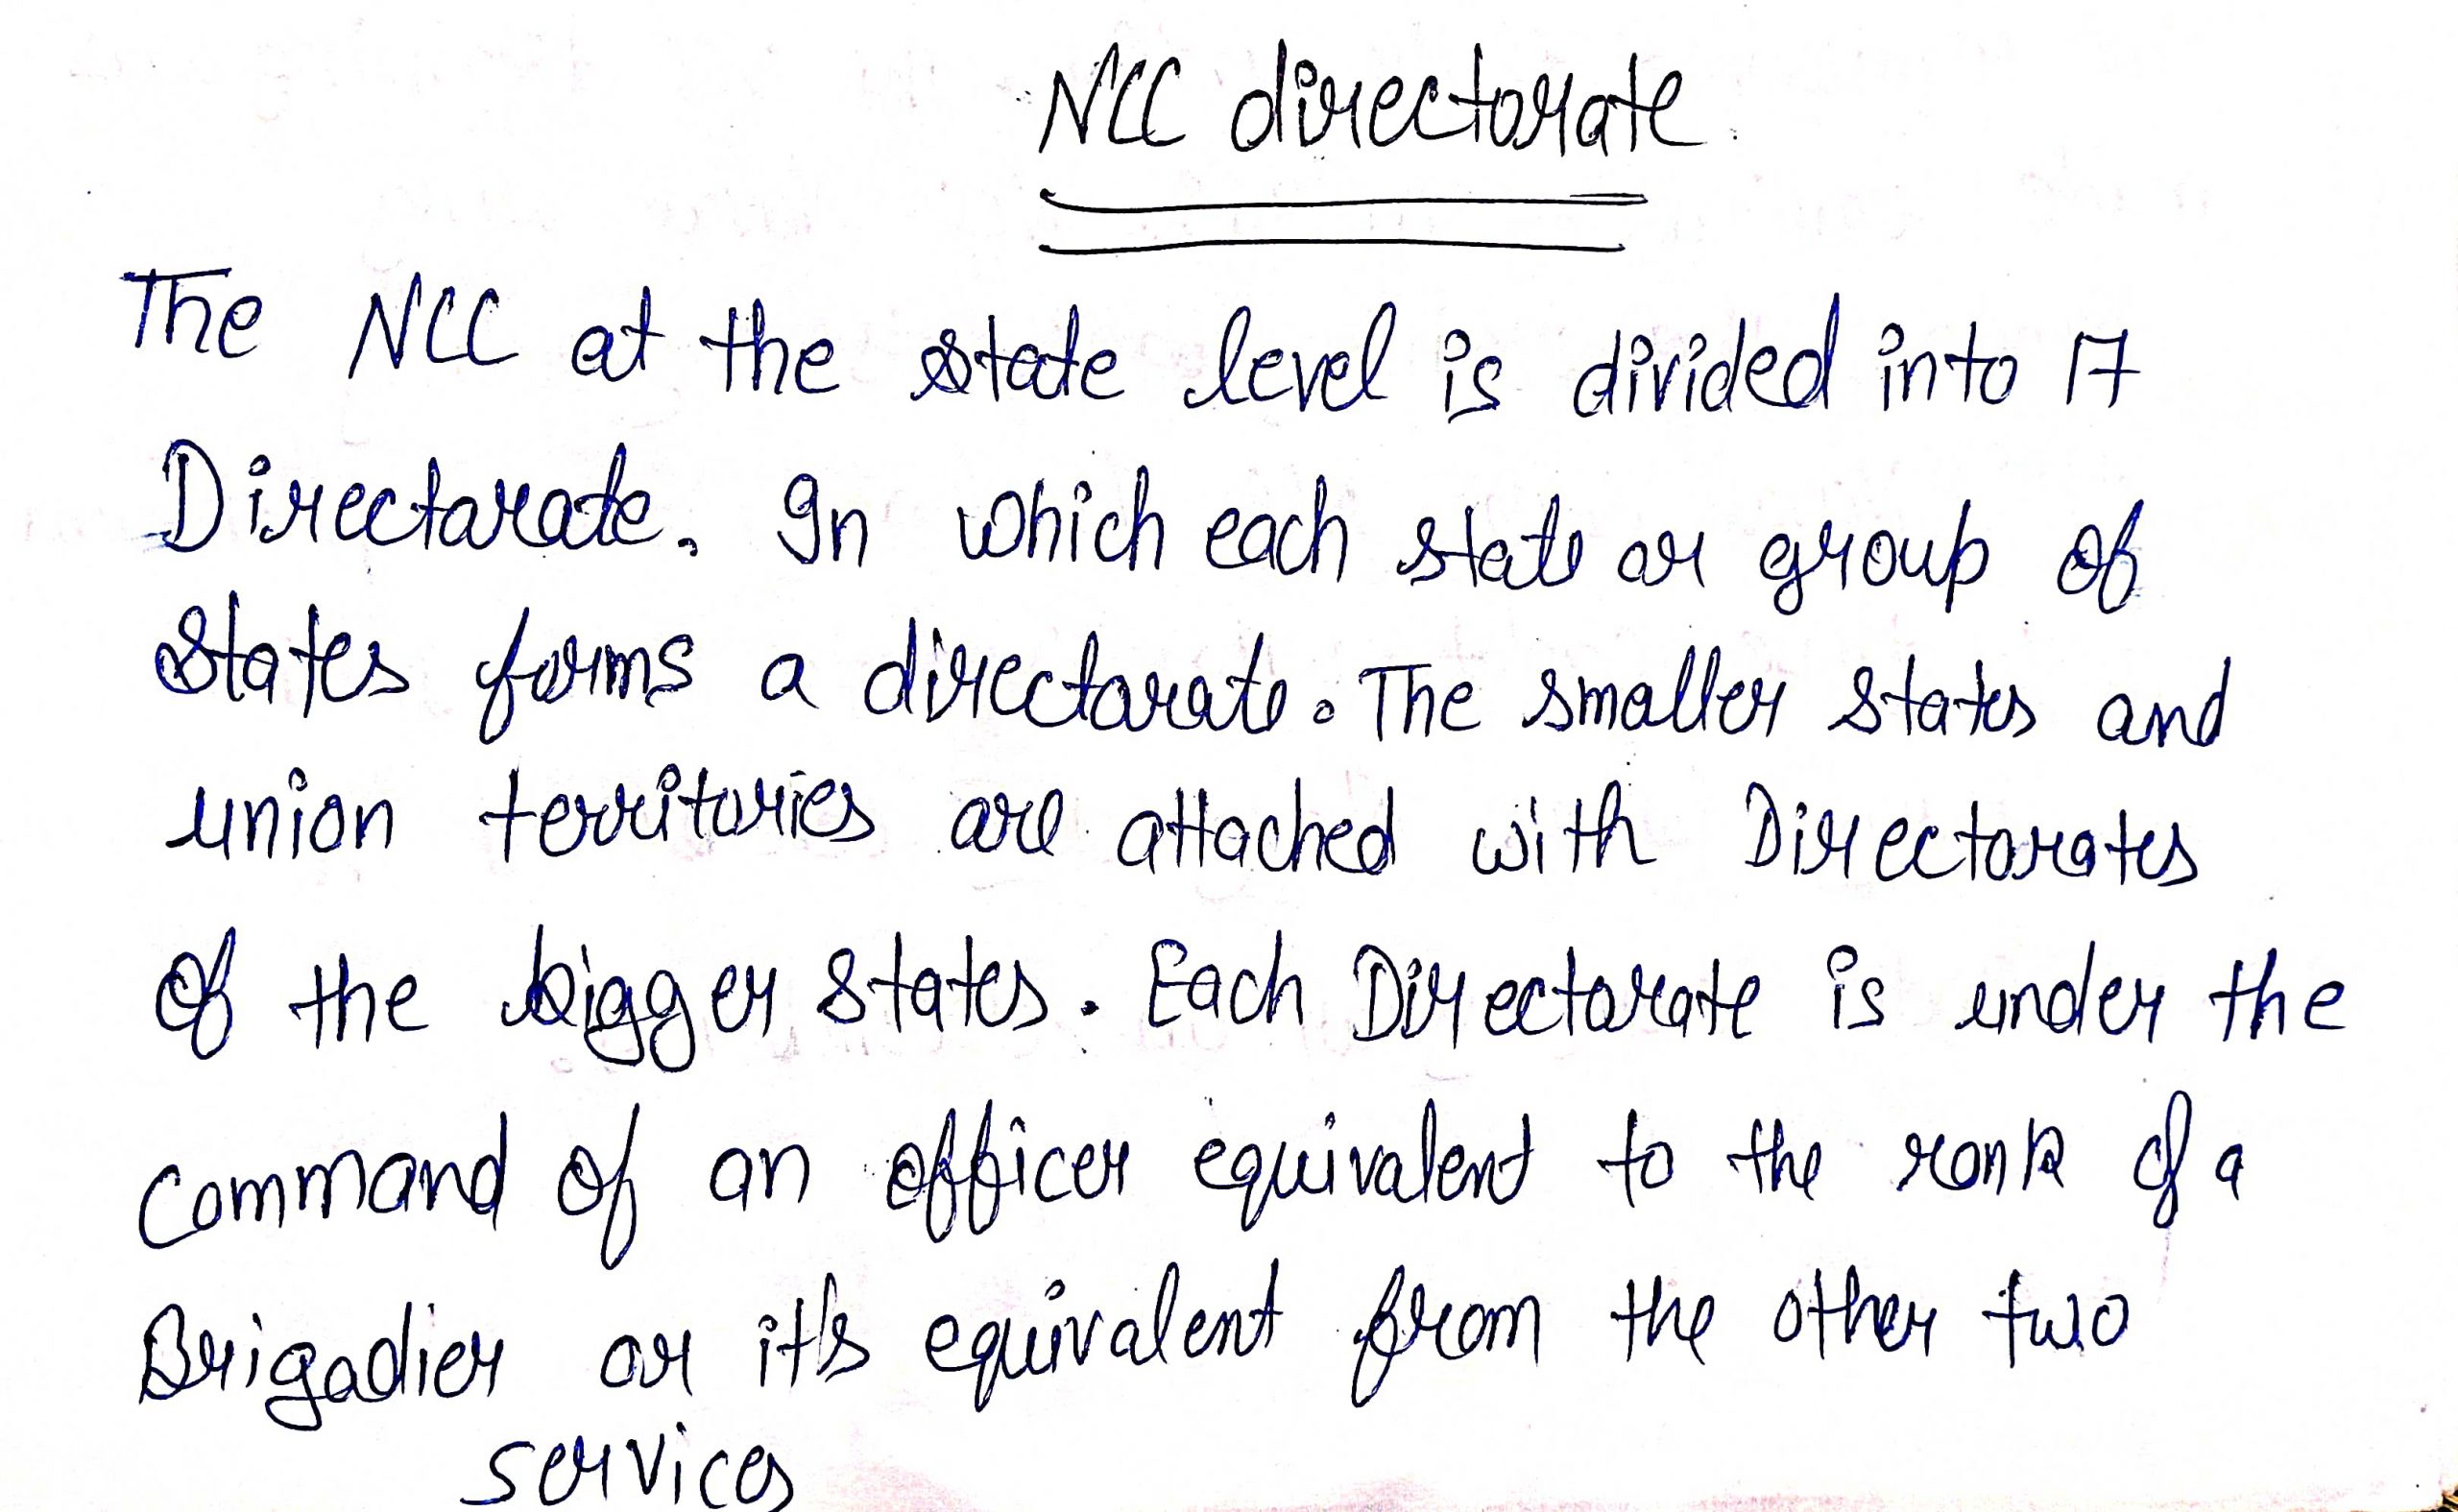 NCC directorate
The NCC at the state level is divided into 17
Directorate. In which each state or group of
States forms a directorate. The smaller states and
union territories are attached with Directorates
of the bigger states. Each Directorate is under the
command of an officer equivalent to the rank of a
Brigadier or it's equivalent from the other two
services